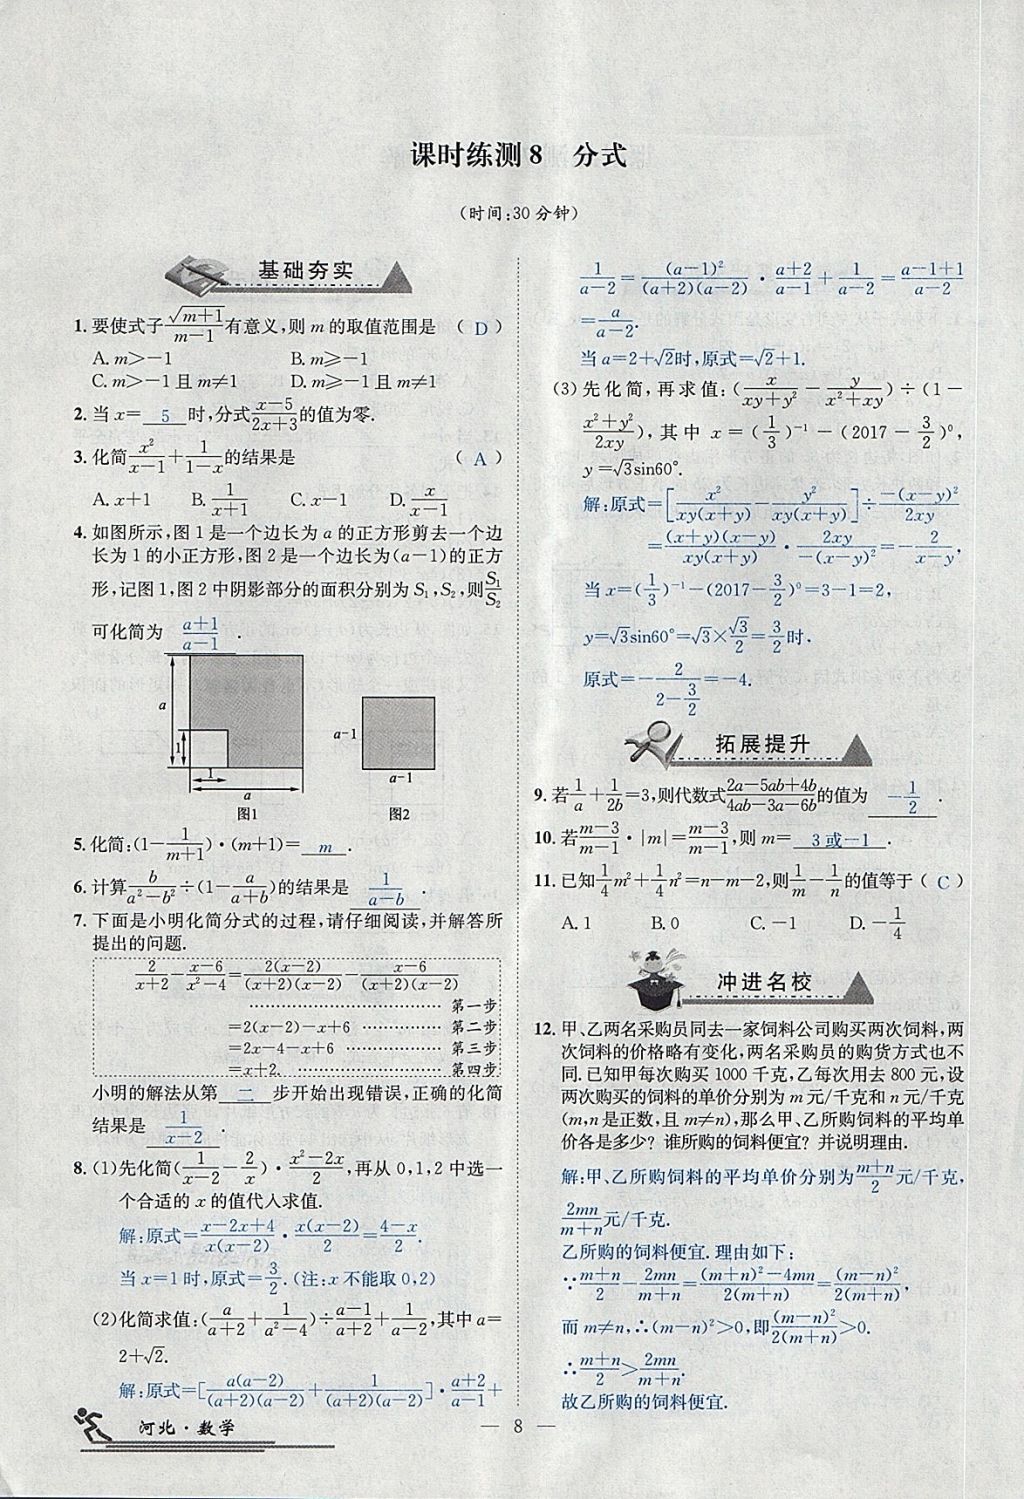 课时练测8 分式
(时间:30分钟)
基础夯实
1.要使式子\frac{\sqrt{m+1}}{m-1}有意义,则m的取值范围是 ( D )
A.m>-1 B.m≥-1
C.m>-1且m≠1 D.m≥-1且m≠1
2.当x= 5 时,分式\frac{x-5}{2x+3}的值为零.
3.化简\frac{x^2}{x-1}+\frac{1}{1-x}的结果是 ( A )
A.x+1 B.\frac{1}{x+1} C.x-1 D.\frac{x}{x-1}
4.如图所示,图1是一个边长为a的正方形剪去一个边
长为1的小正方形,图2是一个边长为(a-1)的正方
形,记图1,图2中阴影部分的面积分别为S₁,S₂,则\frac{S₁}{S₂}
可化简为 \frac{a+1}{a-1} .
a
1
1
a
图1
a-1
a-1
图2
5.化简:(1-\frac{1}{m+1})·(m+1)= m .
6.计算\frac{b}{a^2-b^2}÷(1-\frac{a}{a+b})的结果是 \frac{1}{a-b} .
7.下面是小明化简分式的过程,请仔细阅读,并解答所
提出的问题.
\frac{2}{x+2}-\frac{x-6}{x^2-4}=\frac{2(x-2)}{(x+2)(x-2)}-\frac{x-6}{(x+2)(x-2)}
………………………… 第一步
=2(x-2)-x+6 …………… 第二步
=2x-4-x+6 ……………… 第三步
=x+2. ……………………… 第四步
小明的解法从第 二 步开始出现错误,正确的化简
结果是 \frac{1}{x-2} .
8.(1)先化简(\frac{1}{x-2}-\frac{2}{x})·\frac{x^2-2x}{2},再从0,1,2中选一
个合适的x的值代入求值.
解:原式=\frac{x-2x+4}{x(x-2)}·\frac{x(x-2)}{2}=\frac{4-x}{2}.
当x=1时,原式=\frac{3}{2}.(注:x不能取0,2)
(2)化简求值:(\frac{a}{a+2}+\frac{1}{a^2-4})÷\frac{a-1}{a+2}+\frac{1}{a-2},其中a=
2+\sqrt{2}.
解:原式=[\frac{a(a-2)}{(a+2)(a-2)}+\frac{1}{(a+2)(a-2)}]·\frac{a+2}{a-1}+
\frac{1}{a-2}=\frac{(a-1)^2}{(a+2)(a-2)}·\frac{a+2}{a-1}+\frac{1}{a-2}=\frac{a-1+1}{a-2}
=\frac{a}{a-2}.
当a=2+\sqrt{2}时,原式=\sqrt{2}+1.
(3)先化简,再求值:(\frac{x}{xy+y^2}-\frac{y}{x^2+xy})÷(1-
\frac{x^2+y^2}{2xy}),其中x=(\frac{1}{3})^{-1}-(2017-\frac{3}{2})^0,
y=\sqrt{3}sin60°.
解:原式=[\frac{x^2}{xy(x+y)}-\frac{y^2}{xy(x+y)}]÷\frac{-(x-y)^2}{2xy}
=\frac{(x+y)(x-y)}{xy(x+y)}·\frac{2xy}{-(x-y)^2}=-\frac{2}{x-y},
当x=(\frac{1}{3})^{-1}-(2017-\frac{3}{2})^0=3-1=2,
y=\sqrt{3}sin60°=\sqrt{3}×\frac{\sqrt{3}}{2}=\frac{3}{2}时.
原式=-\frac{2}{2-\frac{3}{2}}=-4.
拓展提升
9.若\frac{1}{a}+\frac{1}{2b}=3,则代数式\frac{2a-5ab+4b}{4ab-3a-6b}的值为 -\frac{1}{2} .
10.若\frac{m-3}{m-1}·|m|=\frac{m-3}{m-1},则m= 3或-1 .
11.已知\frac{1}{4}m²+\frac{1}{4}n²=n-m-2,则\frac{1}{m}-\frac{1}{n}的值等于( C )
A.1 B.0 C.-1 D.-\frac{1}{4}
冲进名校
12.甲、乙两名采购员同去一家饲料公司购买两次饲料,两
次饲料的价格略有变化,两名采购员的购货方式也不
同.已知甲每次购买1000千克,乙每次用去800元,设
两次购买的饲料的单价分别为m元/千克和n元/千克
(m,n是正数,且m≠n),那么甲、乙所购饲料的平均单
价各是多少?谁所购的饲料便宜?并说明理由.
解:甲、乙所购饲料的平均单价分别为\frac{m+n}{2}元/千克,
\frac{2mn}{m+n}元/千克.
乙所购的饲料便宜.理由如下:
∵\frac{m+n}{2}-\frac{2mn}{m+n}=\frac{(m+n)^2-4mn}{2(m+n)}=\frac{(m-n)^2}{2(m+n)},
而m≠n,∴(m-n)²>0,即\frac{(m-n)^2}{2(m+n)}>0.
∴\frac{m+n}{2}>\frac{2mn}{m+n}.
故乙所购的饲料便宜.
河北·数学
— 8 —